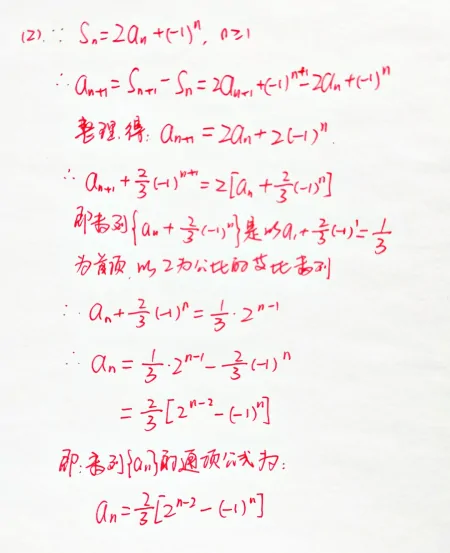 (2). ∵ Sₙ=2aₙ+(-1)ⁿ, n≥1
∴ aₙ₊₁=Sₙ₊₁-Sₙ=2aₙ₊₁+(-1)ⁿ⁺¹-2aₙ+(-1)ⁿ
整理得: aₙ₊₁=2aₙ+2(-1)ⁿ.
∴ aₙ₊₁+2/3(-1)ⁿ⁺¹=2[aₙ+2/3(-1)ⁿ]
即数列{aₙ+2/3(-1)ⁿ}是以a₁+2/3(-1)¹=1/3
为首项,以2为公比的等比数列
∴ aₙ+2/3(-1)ⁿ=1/3·2ⁿ⁻¹
∴ aₙ=1/3·2ⁿ⁻¹-2/3(-1)ⁿ
=2/3[2ⁿ⁻²-(-1)ⁿ]
即:数列{aₙ}的通项公式为:
aₙ=2/3[2ⁿ⁻²-(-1)ⁿ]